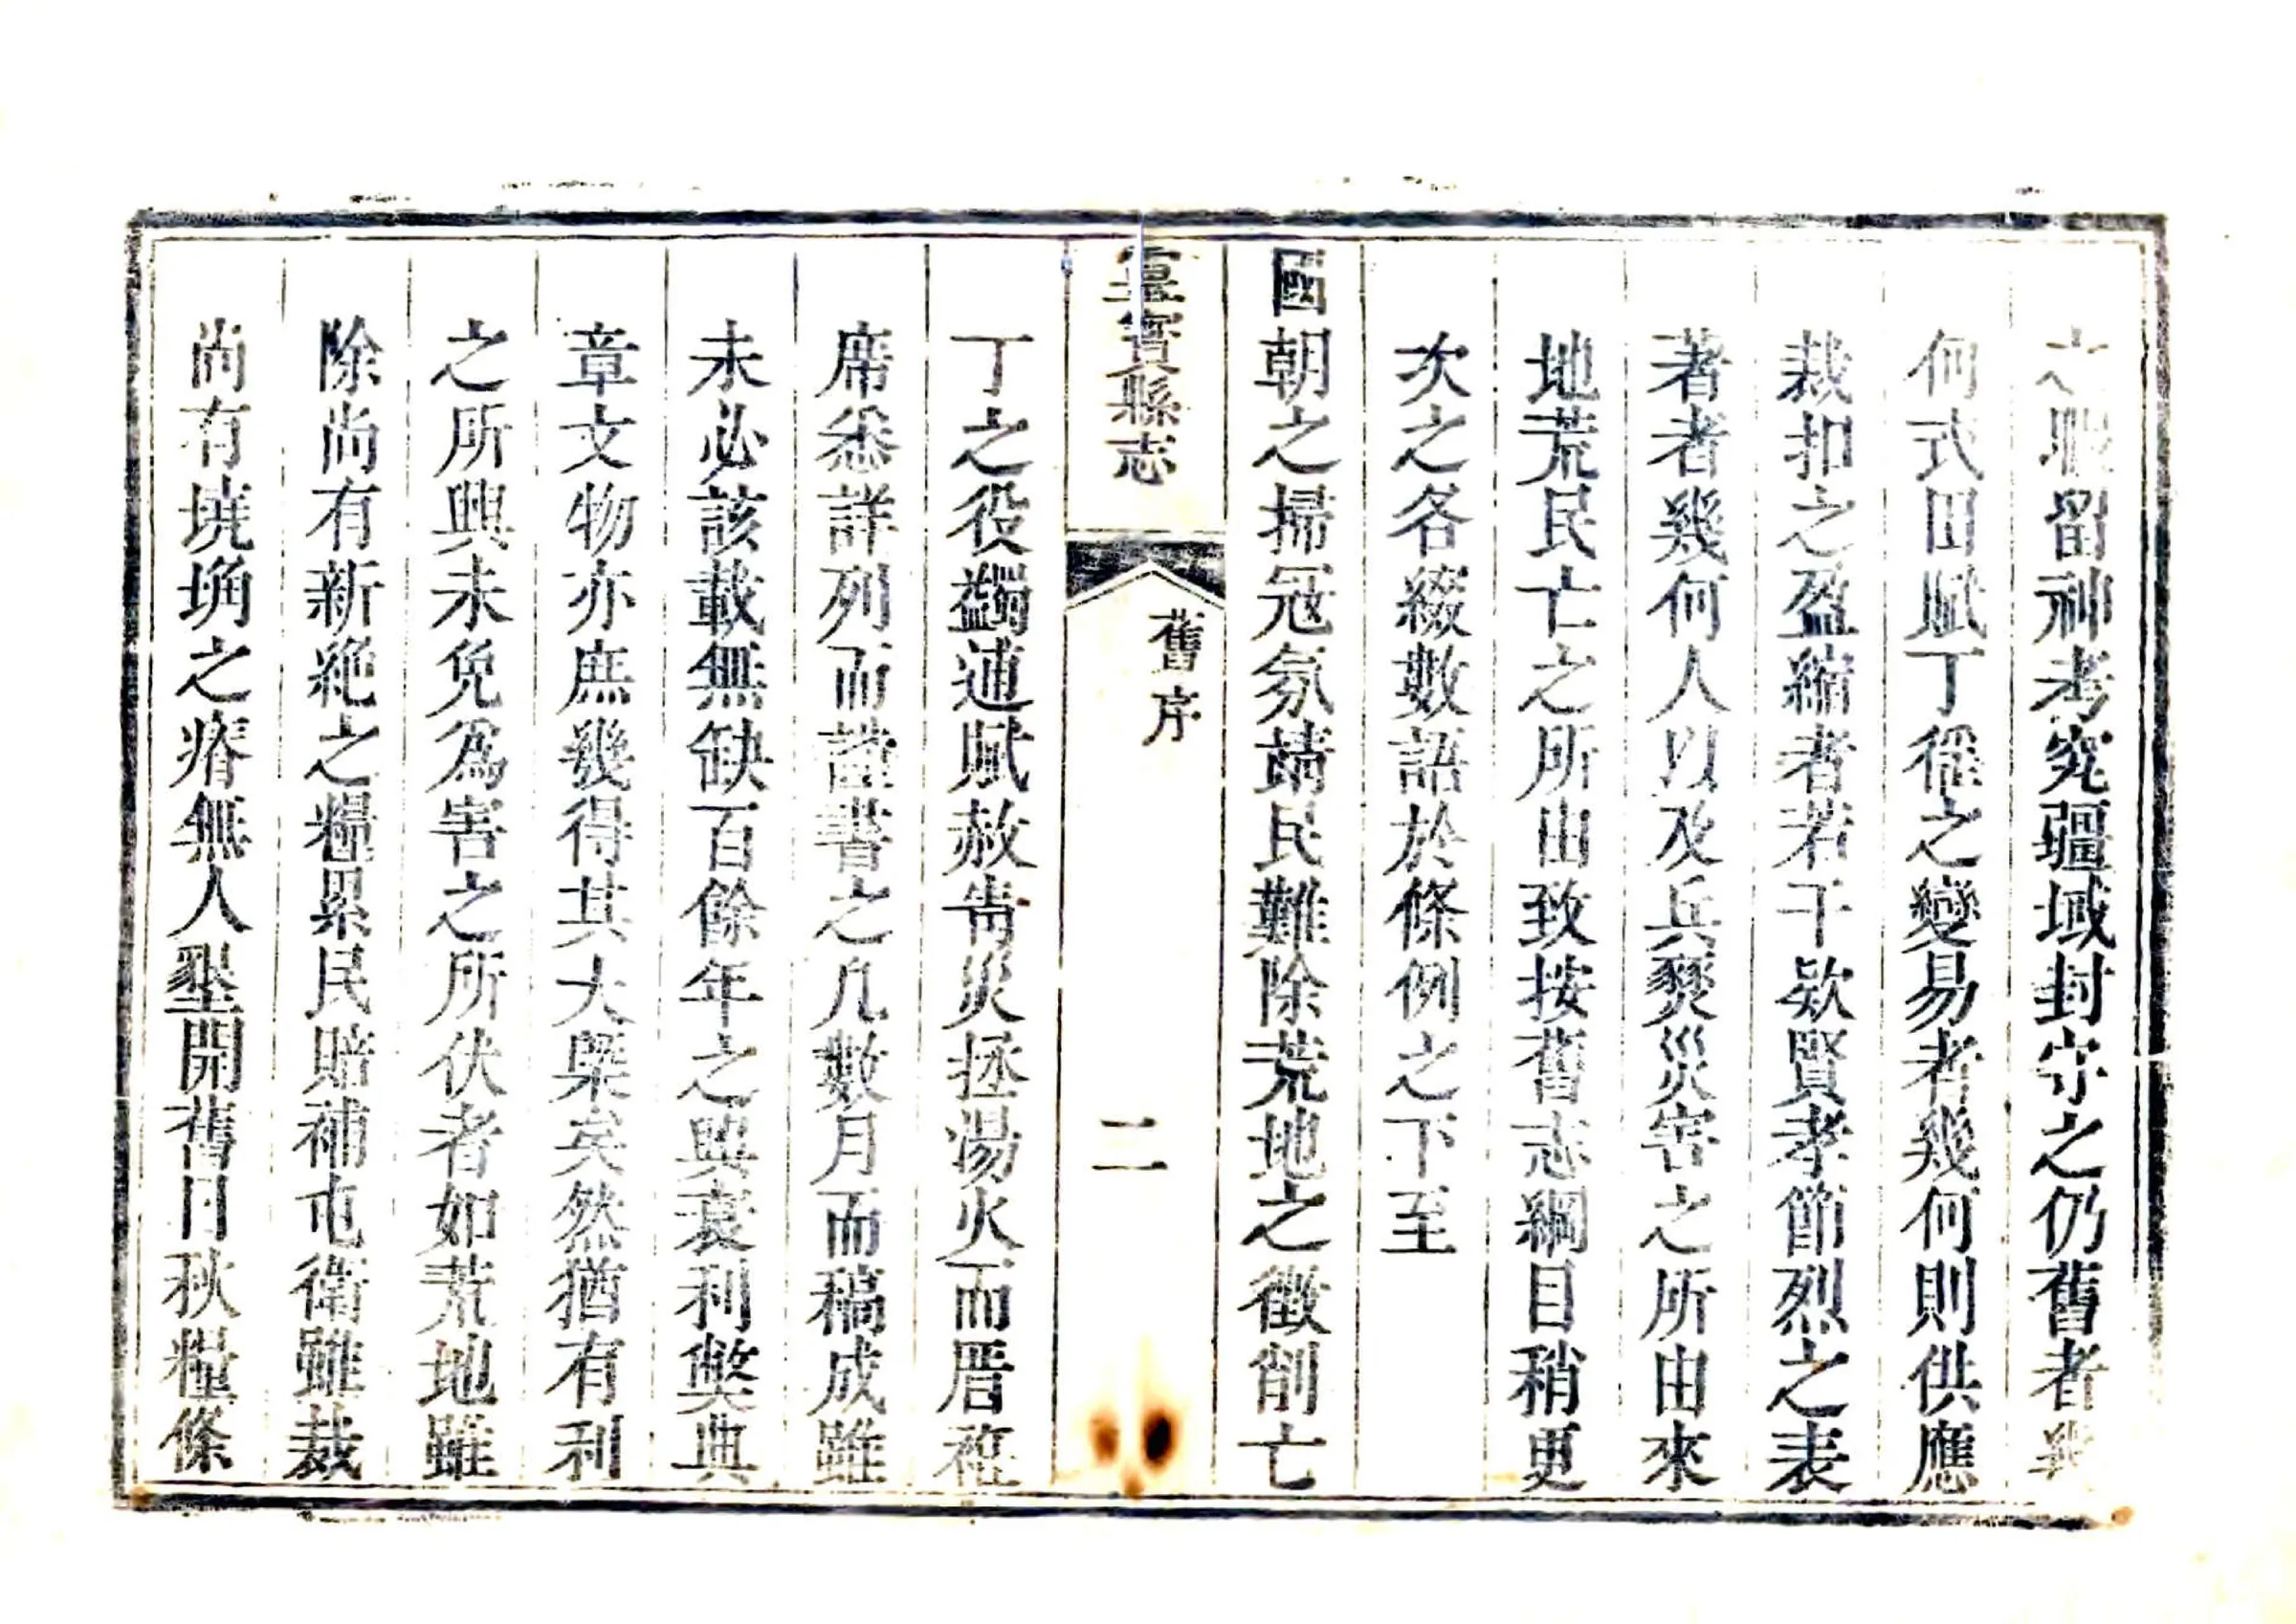 之暇留神考究疆域封守之仍舊者幾
何式田賦丁徭之變易者幾何則供應
裁扣之盈縮者若干欵賢孝節烈之表
著者幾何人以及兵燹災害之所由來
地荒民亡之所由致按舊志綱目稍更
次之各綴數語於條例之下至
國朝之掃冦氛靖民難除荒地之徵削亡
靈寳縣志
舊序
二
丁之役蠲逋賦赦眚災拯湯火而厝袵
席悉詳列而謹書之凡數月而稿成雖
未必該載無缺百餘年之興衰利獘典
章文物亦庶幾得其大槩矣然猶有利
之所興未免爲害之所伏者如荒地雖
除尚有新絶之糧累民賠補屯衛雖裁
尚有墝埆之瘠無人墾開舊日秋糧條